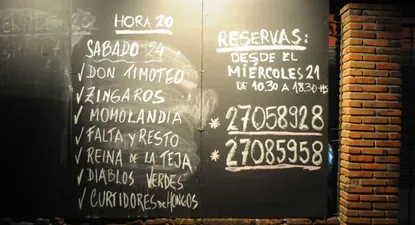 HORA 20
SABADO 24
✓ DON TIMOTEO
✓ ZINGAROS
✓ MOMOLANDIA
✓ FALTA Y RESTO
✓ REINA DE LA TEJA
✓ DIABLOS VERDES
✓ CURTIDORES DE HONGOS
RESERVAS:
DESDE EL
MIÉRCOLES 21
DE 10.30 A 18.30 HS
* 27058928
* 27085958